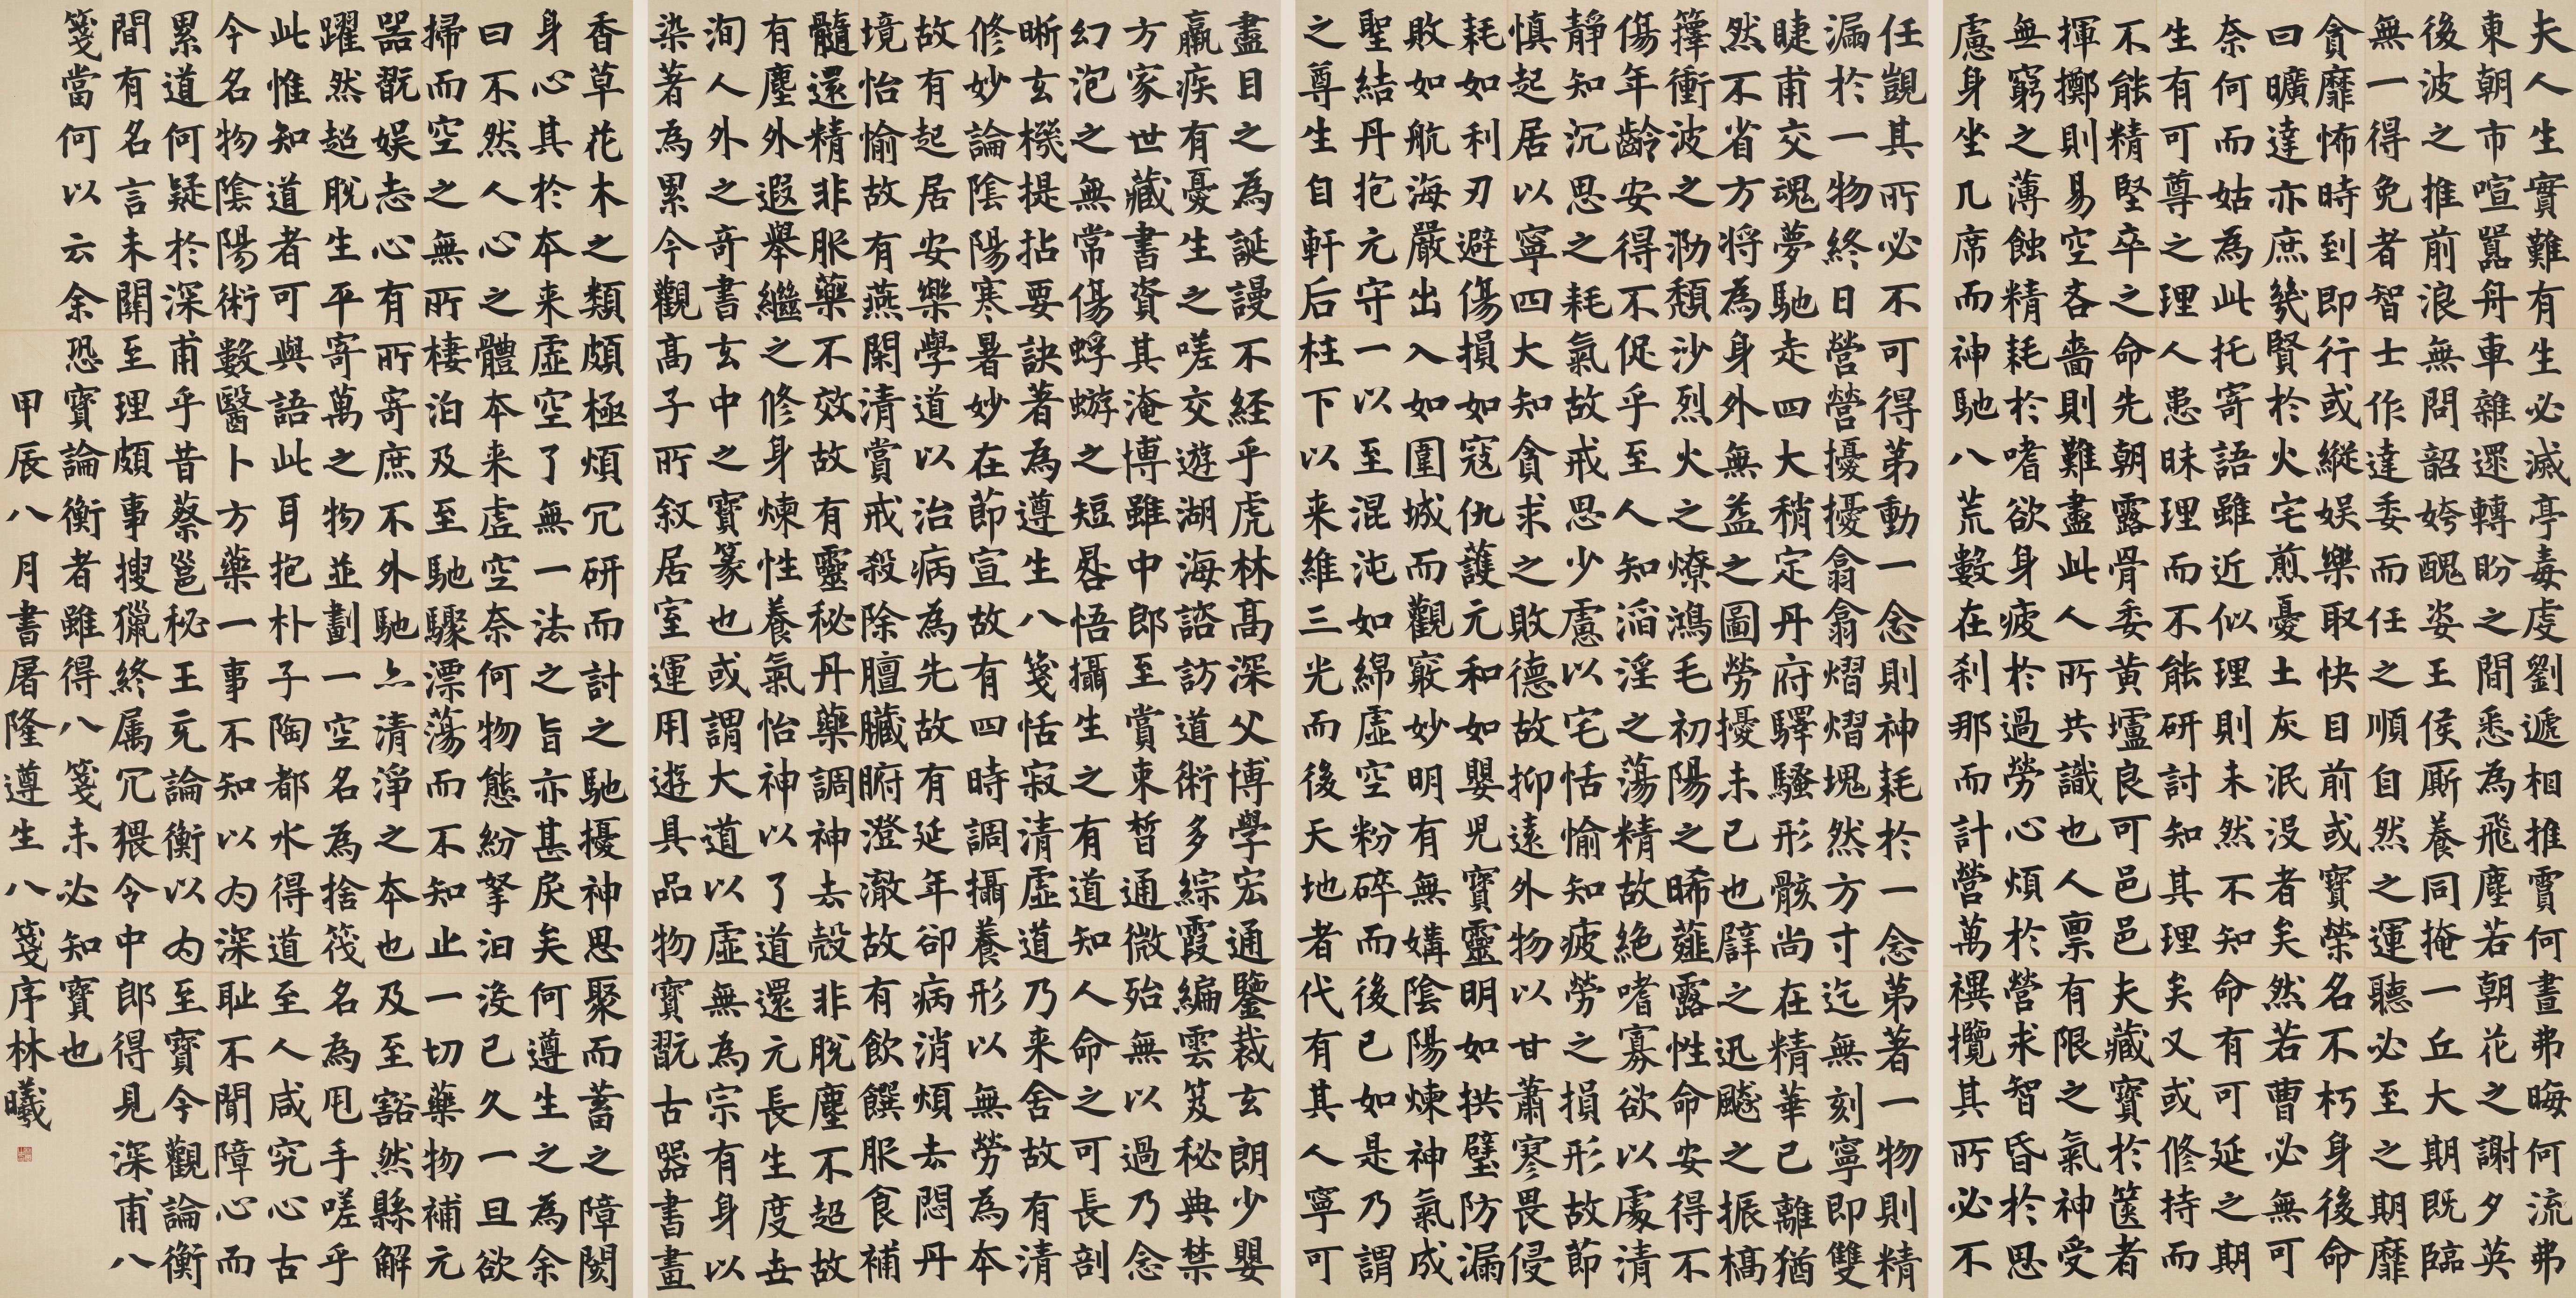 夫人生實難有生必滅亭毒虔劉遞相推霣何晝弗晦何流弗
東朝市喧囂舟車雜遝轉盼之間悉為飛塵若朝花之謝夕英
後波之推前浪無問韶姱醜姿王侯厮養同掩一丘大期既臨
無一得免者智士作達委而任之順自然之運聽必至之期靡
貪靡怖時到即行或縱娱樂取快目前或寶榮名不朽身後命
曰曠達亦庶幾賢於火宅煎憂土灰泯没者矣然若曹必無可
奈何而姑為此托寄語雖近似理則未然不知命有可延之期
生有可尊之理人患昧理而不能研討知其理矣又或修持而
不能精堅卒之命先朝露骨委黄壚良可邑邑夫藏寶於篋者
揮擲則易空吝嗇則難盡此人所共識也人禀有限之氣神受
無窮之薄蝕精耗於嗜欲身疲於過勞心煩於營求智昏於思
慮身坐几席而神馳八荒數在刹那而計營萬禩攬其所必不
任覬其所必不可得第動一念則神耗於一念第著一物則精
漏於一物終日營營擾擾翕翕熠熠塊然方寸迄無刻寧即雙
睫甫交魂夢馳走四大稍定丹府驛騷形骸尚在精華已離猶
然不省方将為身外無益之圖勞擾未已也辟之迅飈之振槁
籜衝波之泐頹沙烈火之燎鴻毛初陽之晞薤露性命安得不
傷年齡安得不促乎至人知滔淫之蕩精故絶嗜寡欲以處清
靜知沉思之耗氣故戒思少慮以宅恬愉知疲勞之損形故節
慎起居以寧四大知貪求之敗德故抑遠外物以甘蕭寥畏侵
耗如利刃避傷損如寇仇護元和如嬰児寶靈明如拱璧防漏
敗如航海嚴出入如圍城而觀竅妙明有無媾陰陽煉神氣成
聖結丹抱元守一以至混沌如綿虛空粉碎而後已如是乃謂
之尊生自軒后柱下以来維三光而後天地者代有其人寧可
盡目之為誕謾不經乎虎林高深父博學宏通鑒裁玄朗少嬰
羸疾有憂生之嗟交遊湖海諮訪道術多綜霞編雲笈秘典禁
方家世藏書資其淹博雖中郎至賞束晳通微殆無以過乃念
幻泡之無常傷蜉蝣之短晷悟攝生之有道知人命之可長剖
晰玄機提拈要訣著為遵生八箋恬寂清虛道乃来舍故有清
修妙論陰陽寒暑妙在節宣故有四時調攝養形以無勞為本
故有起居安樂學道以治病為先故有延年卻病消煩去悶丹
境怡愉故有燕閑清賞戒殺除膻臟腑澄澈故有飲饌服食補
髓還精非服藥不效故有靈秘丹藥調神去殼非脫塵不超故
有塵外遐舉繼之修身煉性養氣怡神以了道還元長生度世
洵人外之奇書玄中之寶篆也或謂大道以虛無為宗有身以
染著為累今觀高子所敘居室運用遊具品物寶翫古器書畫
香草花木之類頗極煩冗研而討之馳擾神思聚而蓄之障閡
身心其於本来虛空了無一法之旨亦甚戾矣何遵生之為余
曰不然人心之體本来虛空奈何物態紛拏汩没已久一旦欲
掃而空之無所棲泊及至馳驟漂蕩而不知止一切藥物補元
器翫娱志心有所寄庶不外馳亦清淨之本也及至豁然縣解
躍然超脫生平寄萬之物並劃一空名為捨筏名為甩手嗟乎
此惟知道者可與語此耳抱朴子陶都水得道至人咸究心古
今名物陰陽術數醫卜方藥一事不知以为深恥不聞障心而
累道何疑於深甫乎昔蔡邕秘王充論衡以为至寶今觀論衡
間有名言未關至理頗事搜獵終属冗猥令中郎得見深甫八
箋當何以云余恐寶論衡者雖得八箋未必知寶也
甲辰八月書屠隆遵生八箋序林曦